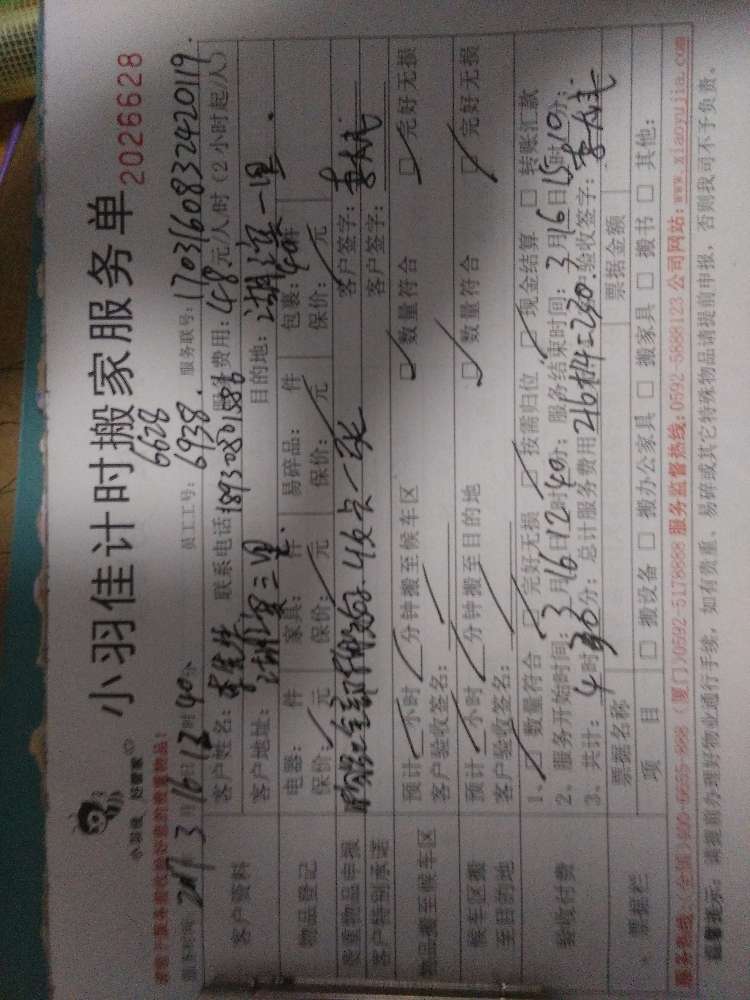 小羽佳计时搬家服务单
2026628
小羽佳 好管家
6628
服务时间: 2017 3月16日12时40分 员工工号: 6938. 服务联号: 170316083242019.
客户资料
客户姓名: 李先生 联系电话 18930801586 服务费用: 48元/人/时 (2小时起/人)
客户地址: 湖滨三里. 目的地: 湖滨一里.
物品登记
电器: 件 家具: 件 易碎品: 件 包裹: 件
保价: 元 保价: 元 保价: 元 保价: 元
贵重物品申报 客户签字:
客户特别承诺 客户签字:
物品搬至候车区
预计 小时 分钟搬至候车区 □ 数量符合 □ 完好无损
客户验收签名:
候车区搬至目的地
预计 小时 分钟搬至目的地 □ 数量符合 □ 完好无损
客户验收签名:
验收付费
1、□ 数量符合 □ 完好无损 □ 按需归位 □ 现金结算 □ 转账汇款
2、服务开始时间: 3月16日12时40分; 服务结束时间: 3月16日15时10分;
3、共计: 时 分; 总计服务费用 验收签字:
票据栏
票据名称 票据金额
项目 □ 搬设备 □ 搬办公家具 □ 搬家具 □ 搬书 □ 其他:
服务热线: (全国)400-6655-888 (厦门)0592-5178888 服务监督热线: 0592-5888123 公司网站: www.xiaoyujia.com
温馨提示: 请提前办理好物业通行手续, 如有贵重、易碎或其它特殊物品请提前申报, 否则我司不予负责。